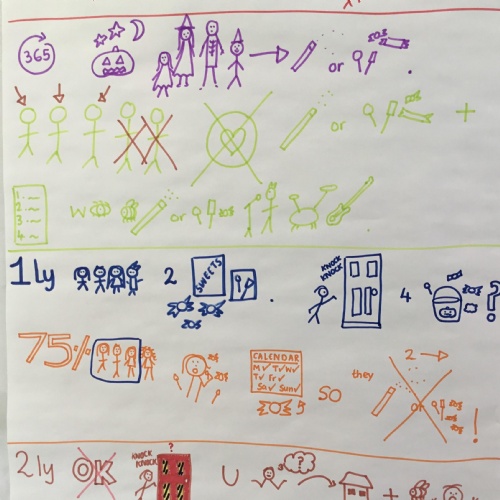 365
or .
or +
1. 2. 3. 4. W or
1ly 2 SWEETS . KNOCK KNOCK 4 ?
75% CALENDAR
M✓ T✓ W✓
T✓ Fr✓
Sa✓ Sun✓
5 SO they or 2 → !
2ly OK KNOCK KNOCK ? U ? +